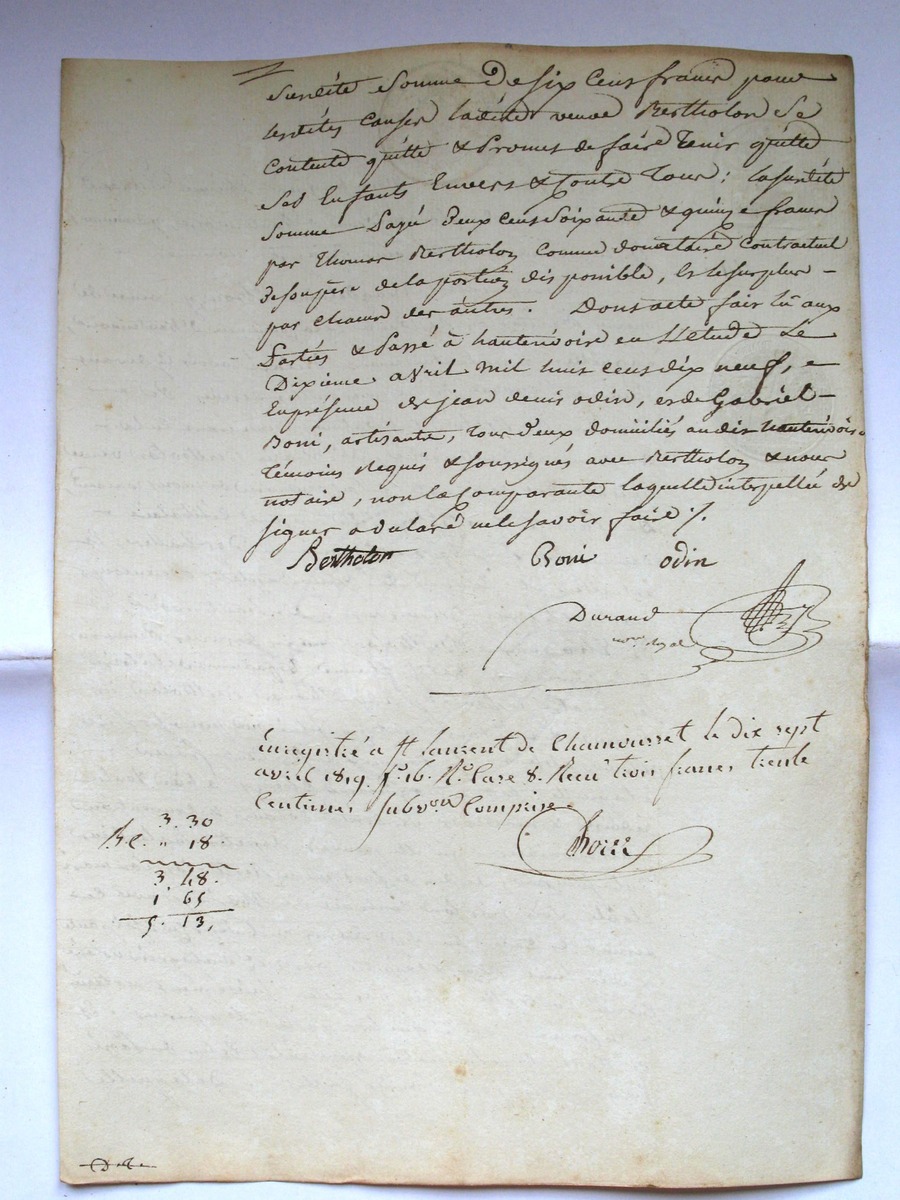 susdite Somme De six Cens francs pour
lesdites Causes laditte veuve Bertholon Se
Contente quitte & Promet de faire Tenir quitte
Ses Enfants Envers & Contre Tous; la susdite
Somme Payé Deux Cens Soixante & quinze francs
par Thomas Bertholon Comme donataire Contractuel
de Son père de la portion disponible, Et le surplus –
par Chacun des autres. Dont acte fait lû aux
Parties & Passé à hauterivoire en L'étude Le
Dixième avril mil huit Cens dix neuf, e
En présence de jean denis odin, et de Gabriel –
Boni, artisants, Tous d'eux domiciliés audit hauterivoire
Témoins Requis & Soussignés avec Bertholon & nous
notaire, non la Comparante laquelle interpellée de
signer a déclaré ne le savoir faire ./.
Bertholon Boni odin
Durand
Enregistré a St laurent de Chamousset le dix sept
avril 1819. f° 16. R° Case 8. Recu trois francs trente
Centimes Subv.on Comprise
3. 30
18.
3. 48.
1. 65
5. 13,